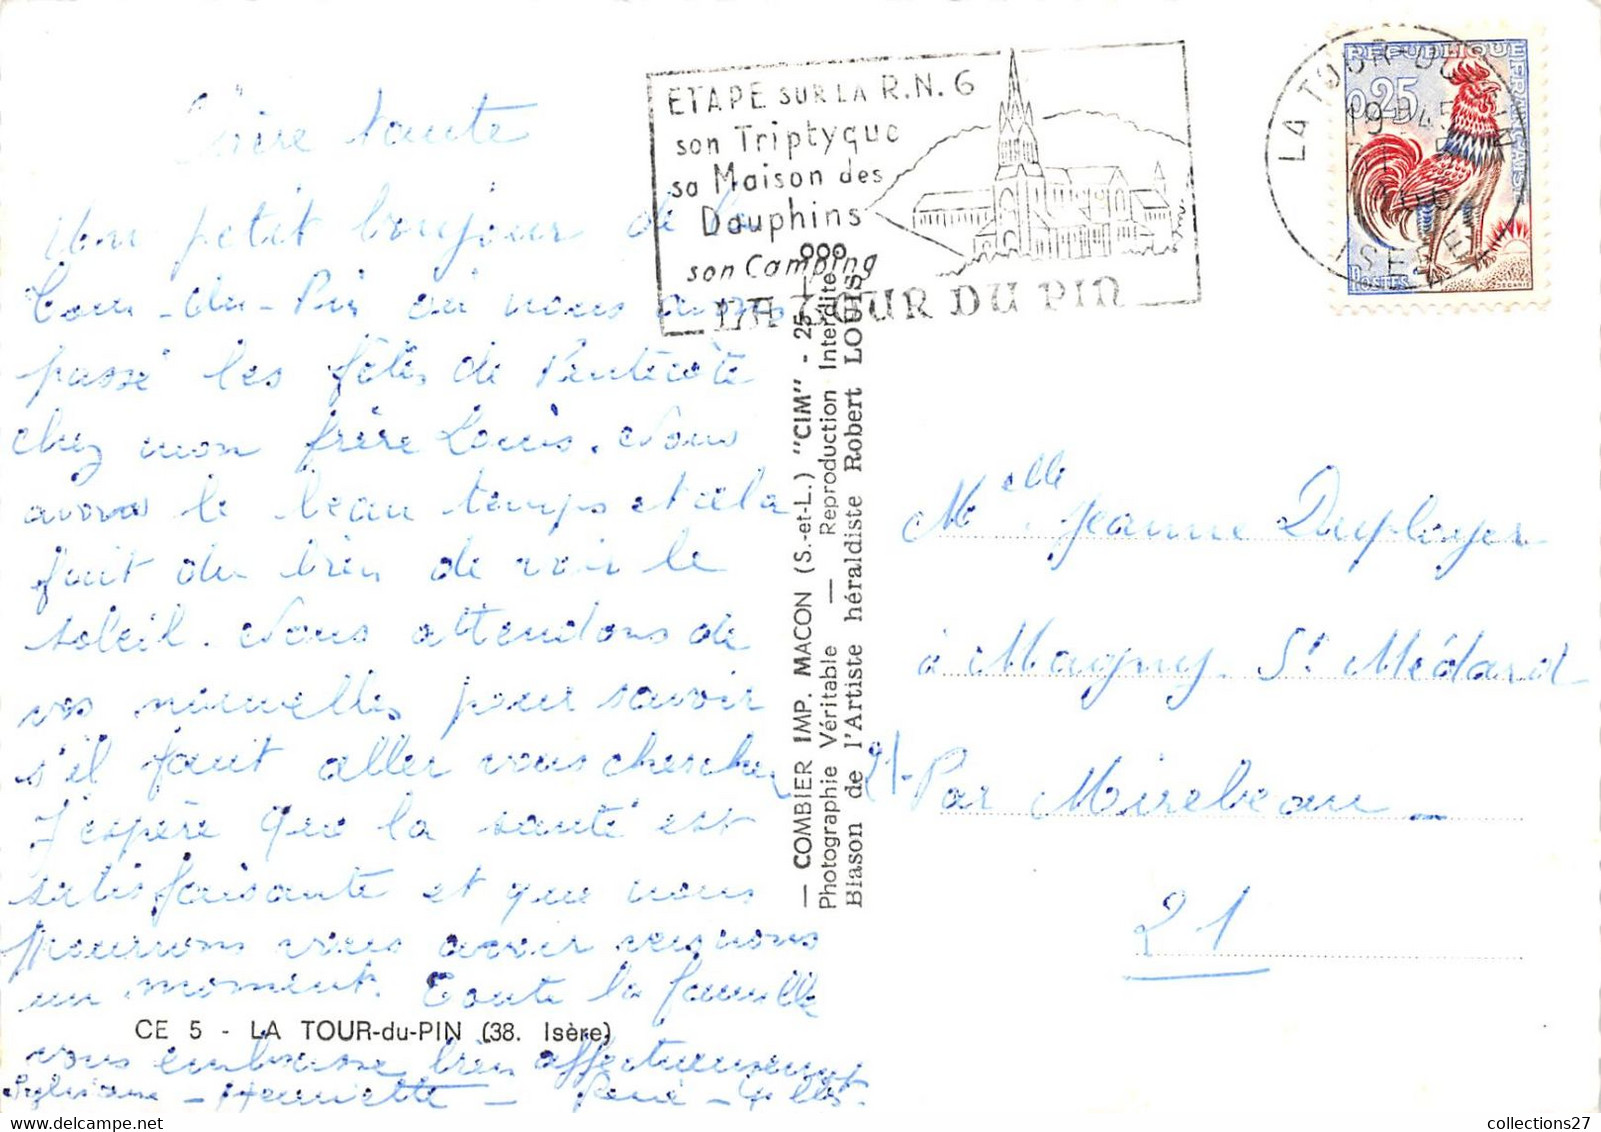 Chère tante
Un petit bonjour de la
Tour-du-Pin où nous avons
passé les fêtes de Pentecôte
chez mon frère Louis. Nous
avons le beau temps et cela
fait du bien de voir le
soleil. Nous attendons de
vos nouvelles pour savoir
s'il faut aller vous chercher
J'espère que la santé est
satisfaisante et que nous
pourrons vous avoir vers nous
un moment. Toute la famille
vous embrasse bien affectueusement
Sylviane - Henriette - René - Gilbt.
CE 5 - LA TOUR-du-PIN (38. Isère)
— COMBIER IMP. MACON (S.-et-L.) "CIM" - 25 —
Photographie Véritable — Reproduction Interdite
Blason de l'Artiste héraldiste Robert LOUIS
ETAPE SUR LA R.N.6
son Triptyque
sa Maison des
Dauphins
son Camping
LA TOUR DU PIN
LA TOUR-DU-PIN
19 H45
ISERE
REPUBLIQUE FRANÇAISE
0,25
POSTES
DECARIS
Melle Jeanne Duployer
à Magny St Médard
21- Par Mirebeau -
21
collections27